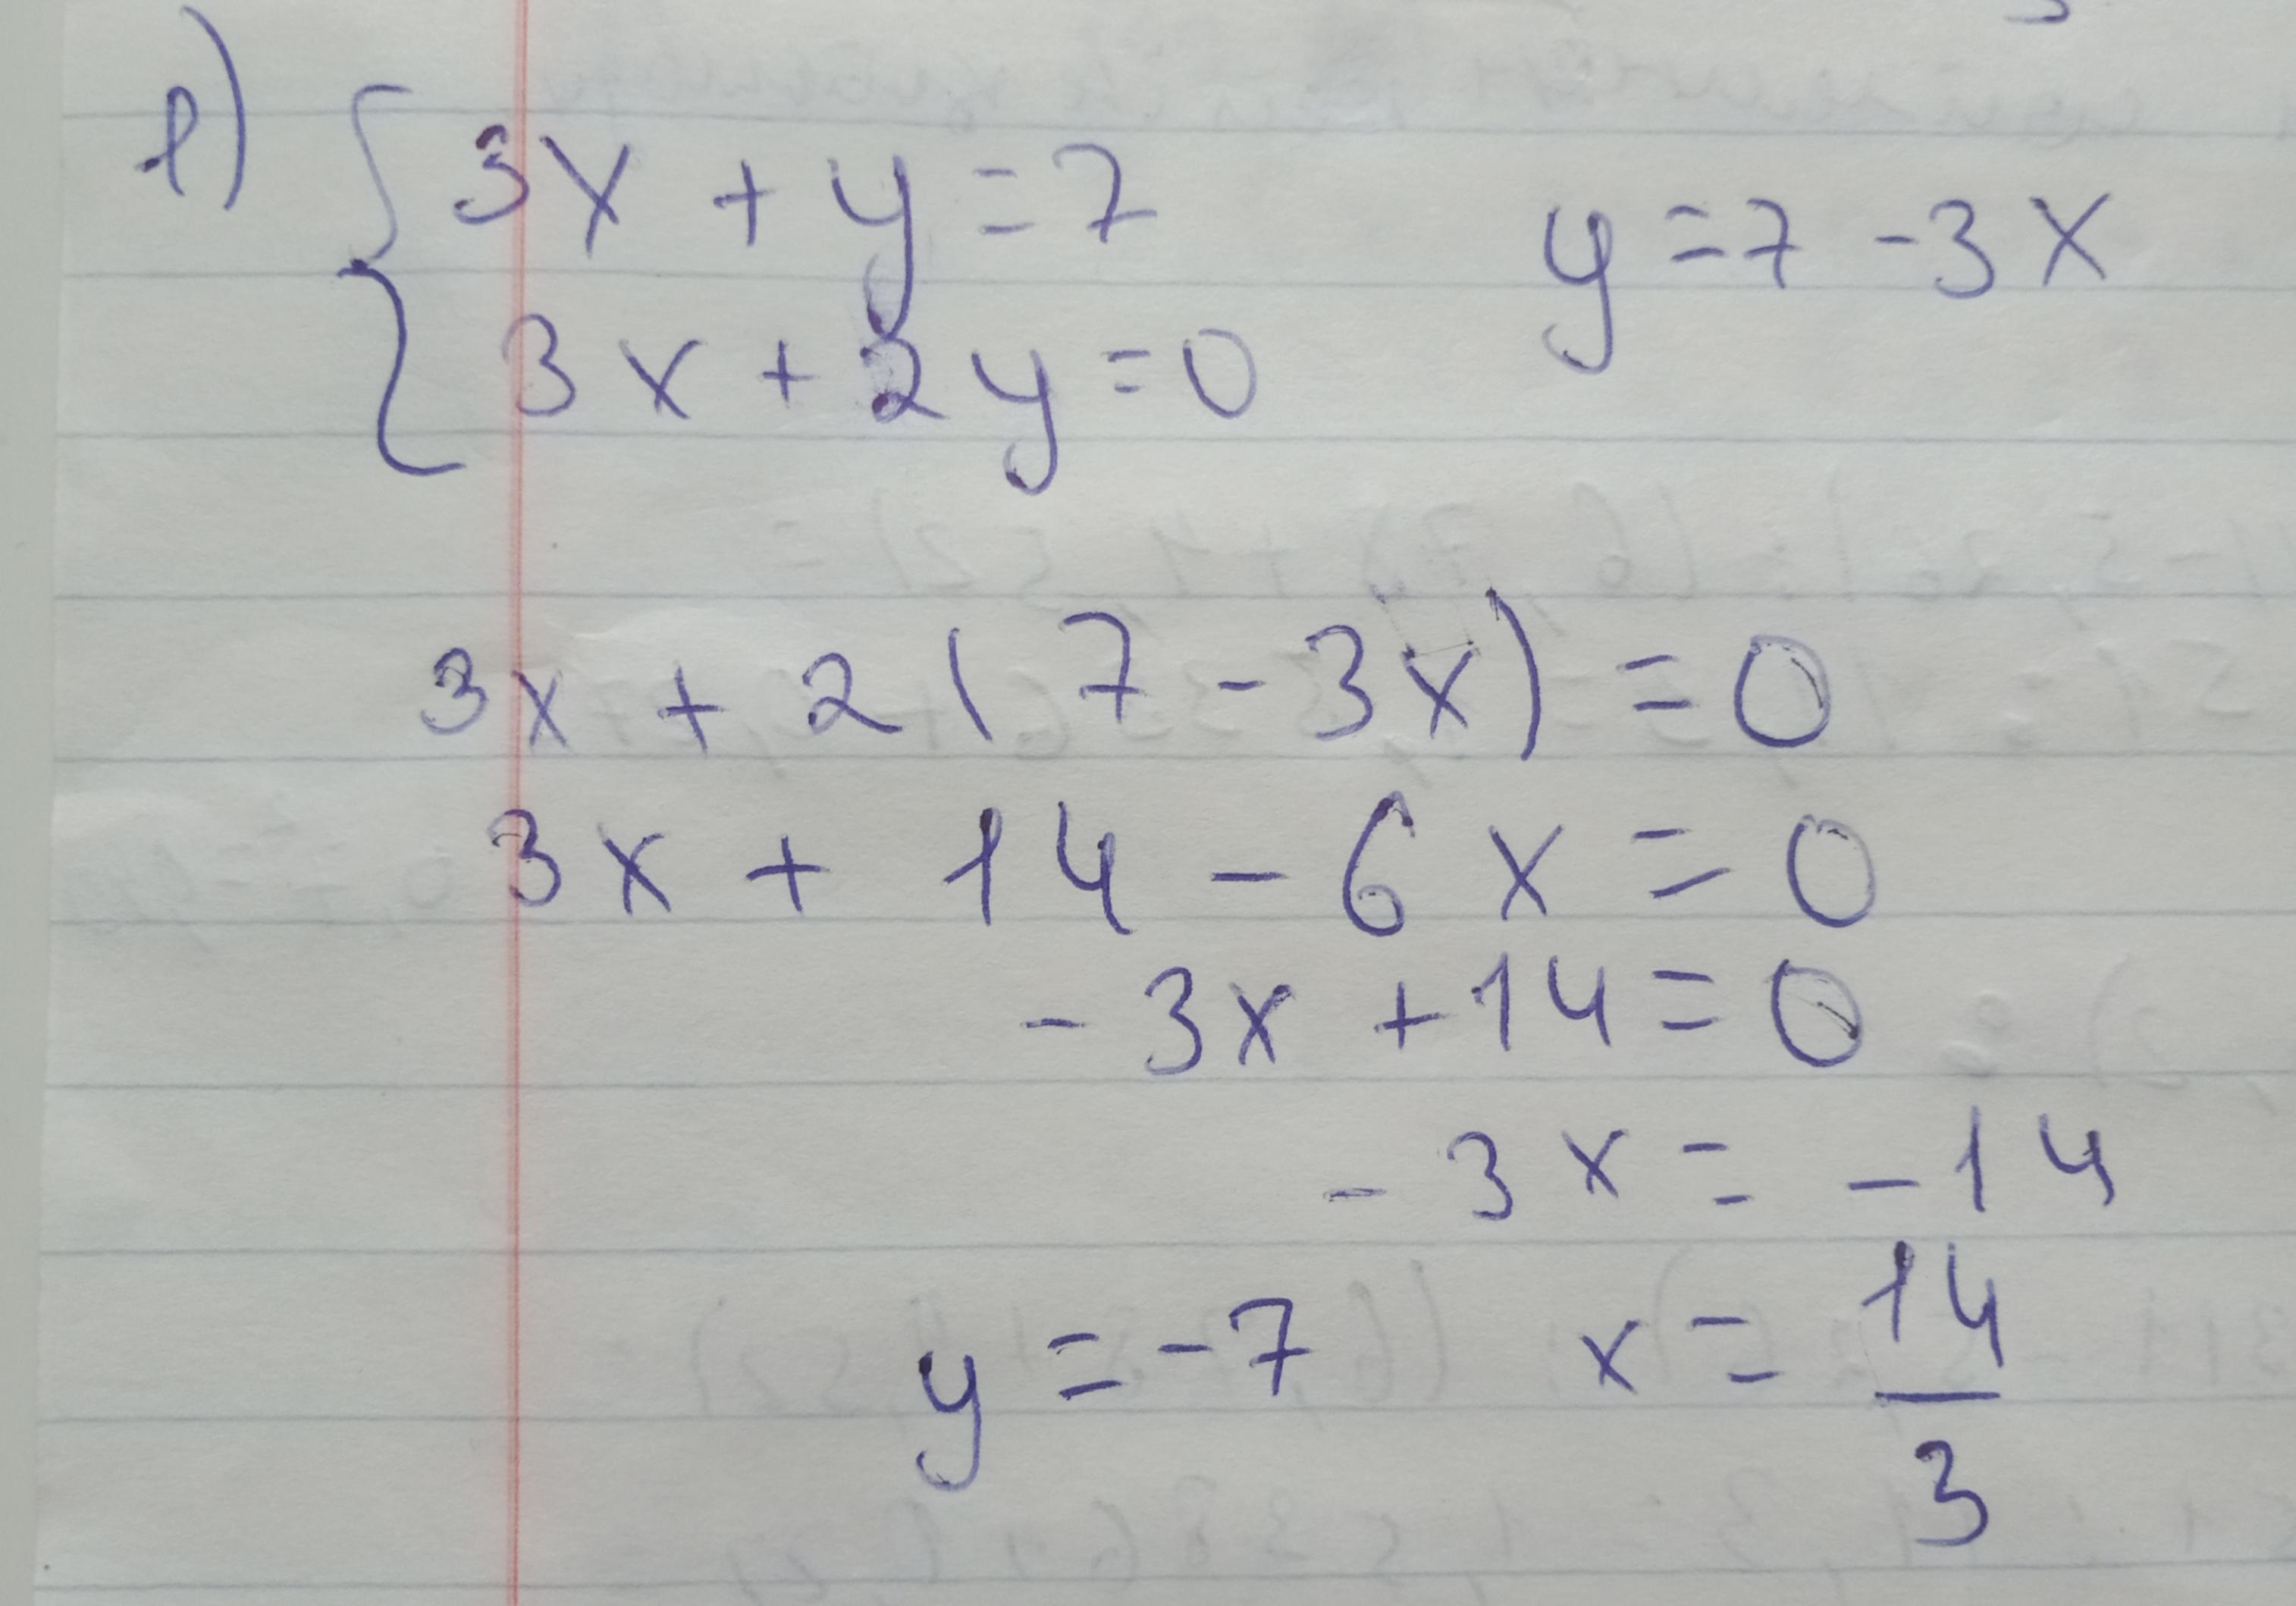 1) { 3x + y = 7     y = 7 - 3x
3x + 2y = 0
3x + 2(7 - 3x) = 0
3x + 14 - 6x = 0
- 3x + 14 = 0
- 3x = - 14
y = - 7     x = 14/3